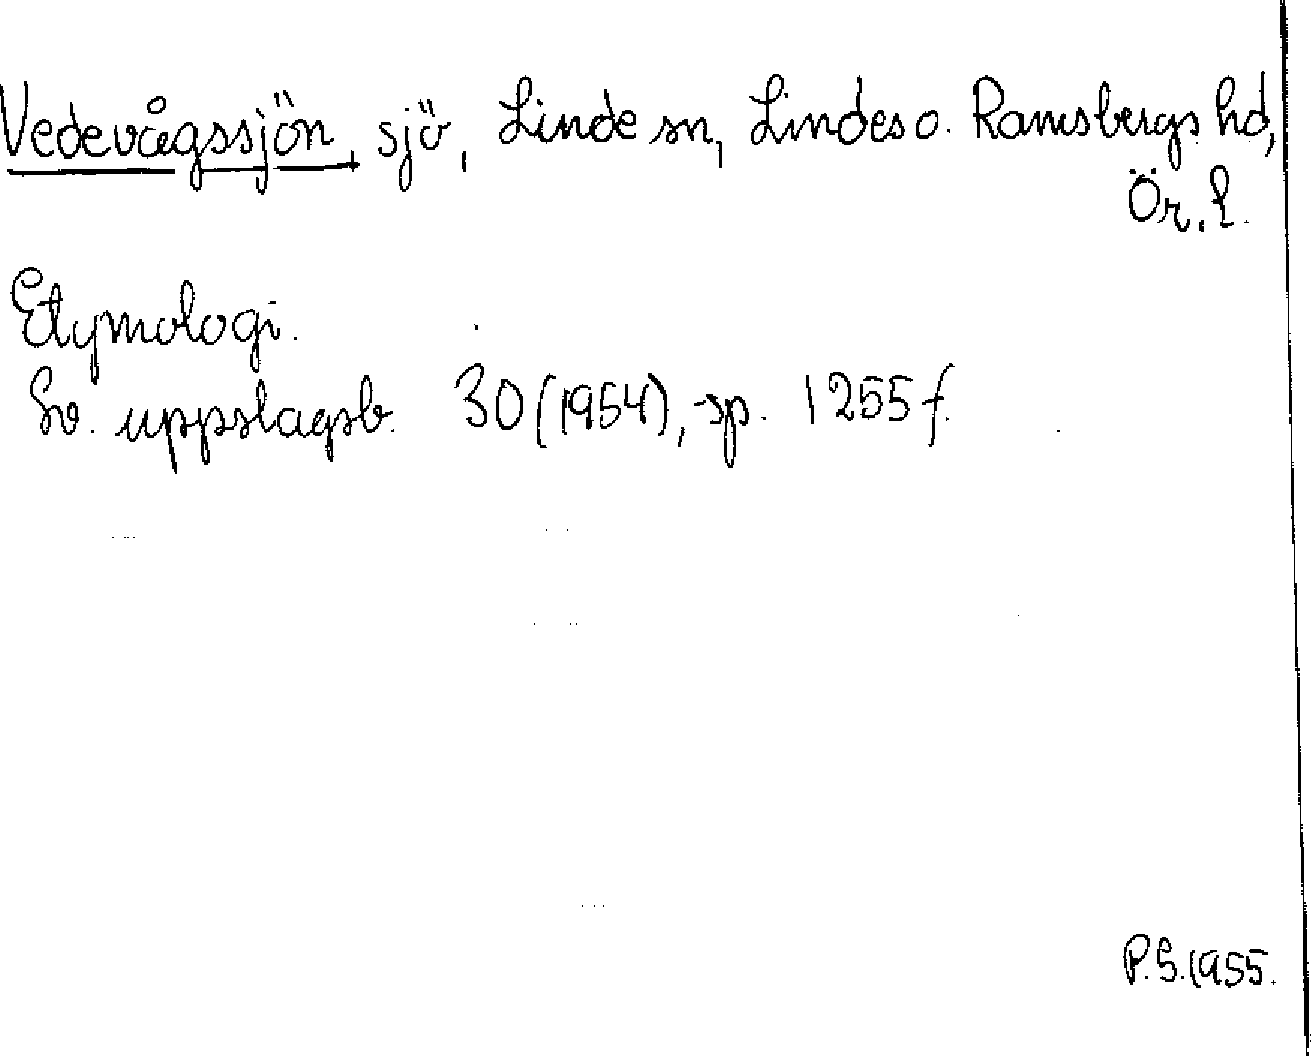 Vedevågssjön, sjö, Linde sn, Lindes o. Ramsbergs hd,
Ör. l.
Etymologi.
Sv. uppslagsb. 30 (1954), sp. 1255 f.
P.S. 1955.